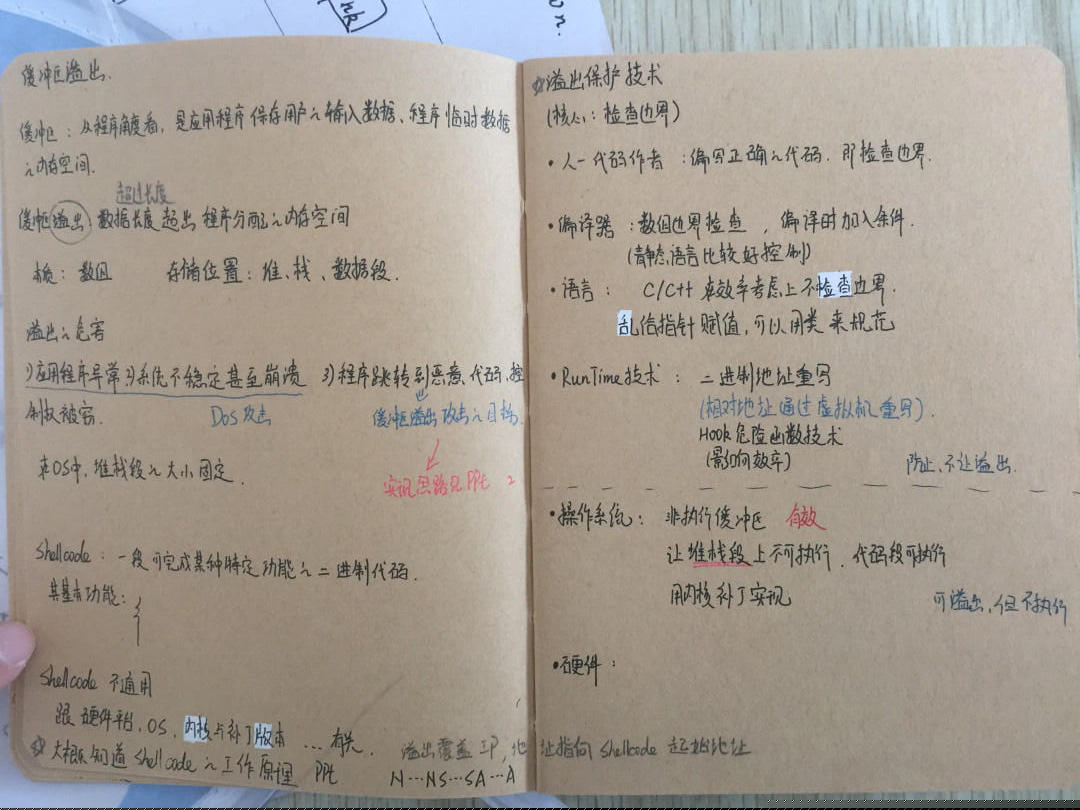 缓冲区溢出.
缓冲区：从程序角度看，是应用程序保存用户的输入数据、程序临时数据
的内存空间.
超过长度
缓冲区溢出：数据长度超出程序分配的内存空间
本质：数组 存储位置：堆、栈、数据段.
溢出的危害
1)应用程序异常 2)系统不稳定甚至崩溃 3)程序跳转到恶意代码，控
制权被窃. DoS攻击 缓冲区溢出攻击的目标.
在OS中，堆栈段的大小固定.
实现思路见PPt
Shellcode：一段可完成某种特定功能的二进制代码.
其基本功能：{
Shellcode 不通用
跟硬件平台、OS、内核与补丁版本 … 有关.
☆ 大概知道 shellcode 的工作原理 PPt
溢出覆盖IP，地址指向 shellcode 起始地址
N…NS…SA…A
☆溢出保护技术
(核心：检查边界)
·人—代码作者：编写正确的代码. 即检查边界.
·编译器：数组边界检查，编译时加入条件.
(静态语言比较好控制)
·语言： C/C++ 在效率考虑上不检查边界.
乱给指针赋值，可以用类来规范
·RunTime技术： 二进制地址重写
(相对地址通过虚拟机重写).
Hook危险函数技术
(影响效率) 防止，不让溢出.
·操作系统： 非执行缓冲区 有效
让堆栈段上不可执行，代码段可执行
用内核补丁实现 可溢出，但不执行
·硬件：